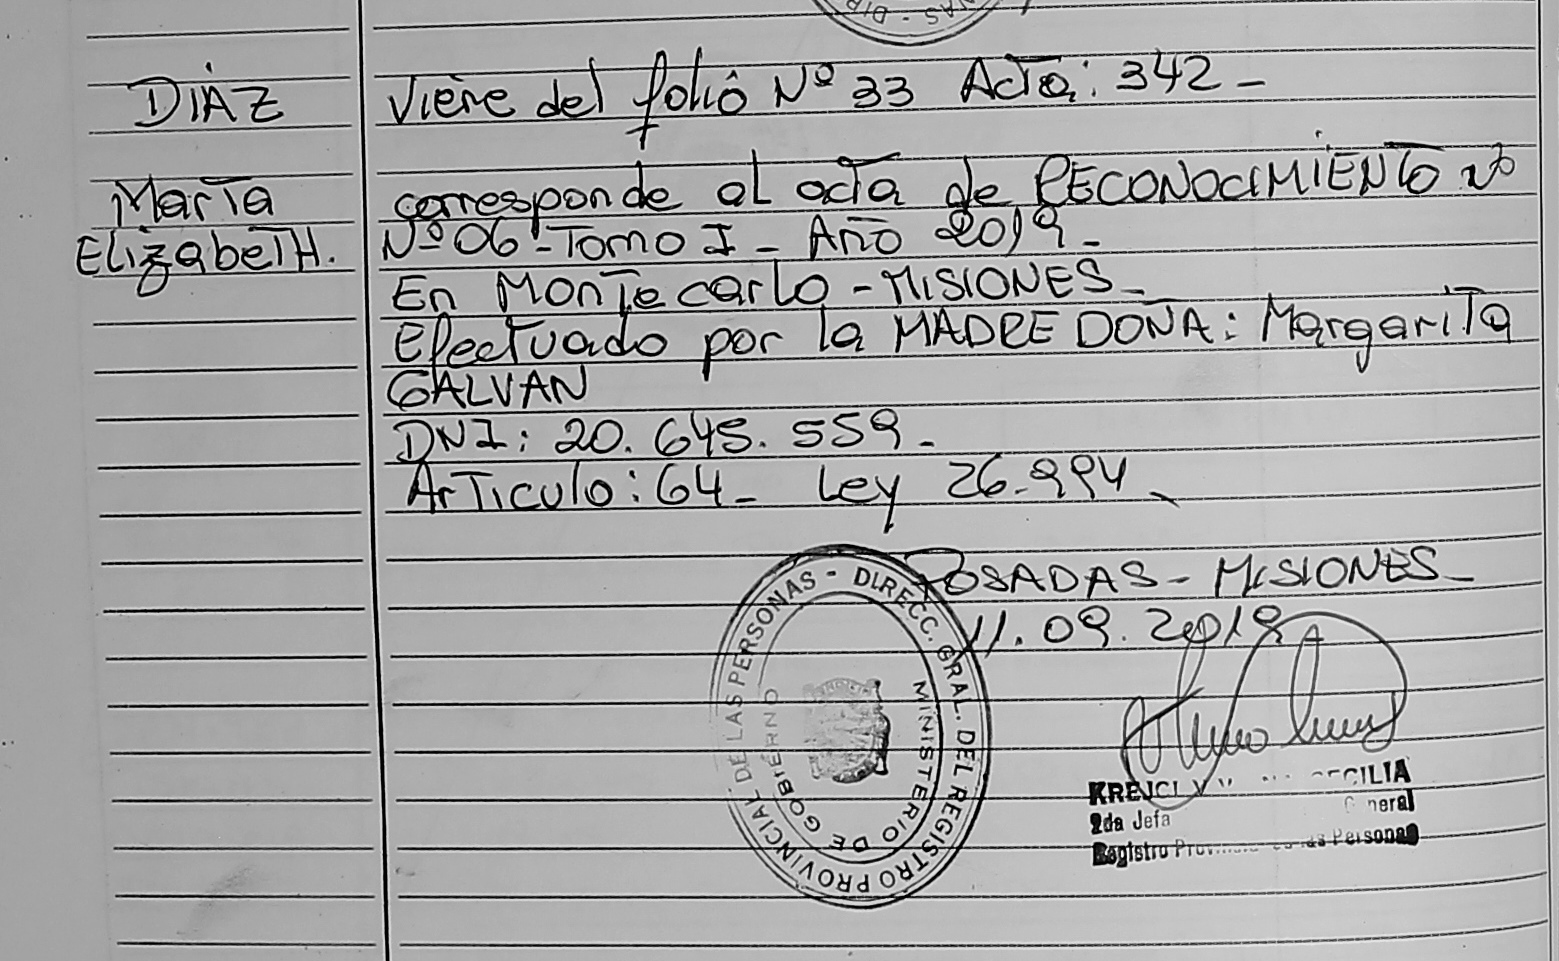 DIÁZ
María
ElizabeTH.
Viene del folio Nº 33 Acta: 342 -
corresponde al acta de RECONOCIMIENTO Nº
Nº 06 - Tomo I - Año 2019 -
En Montecarlo - MISIONES -
Efectuado por la MADRE DOÑA: Margarita
GALVAN
DNI: 20.645.559 -
Articulo: 64 - Ley 26.994 -
POSADAS - MISIONES -
11.09.2019
DIRECC. GRAL. DEL REGISTRO PROVINCIAL DE LAS PERSONAS -
MINISTERIO DE GOBIERNO
2da Jefa
Registro Personas